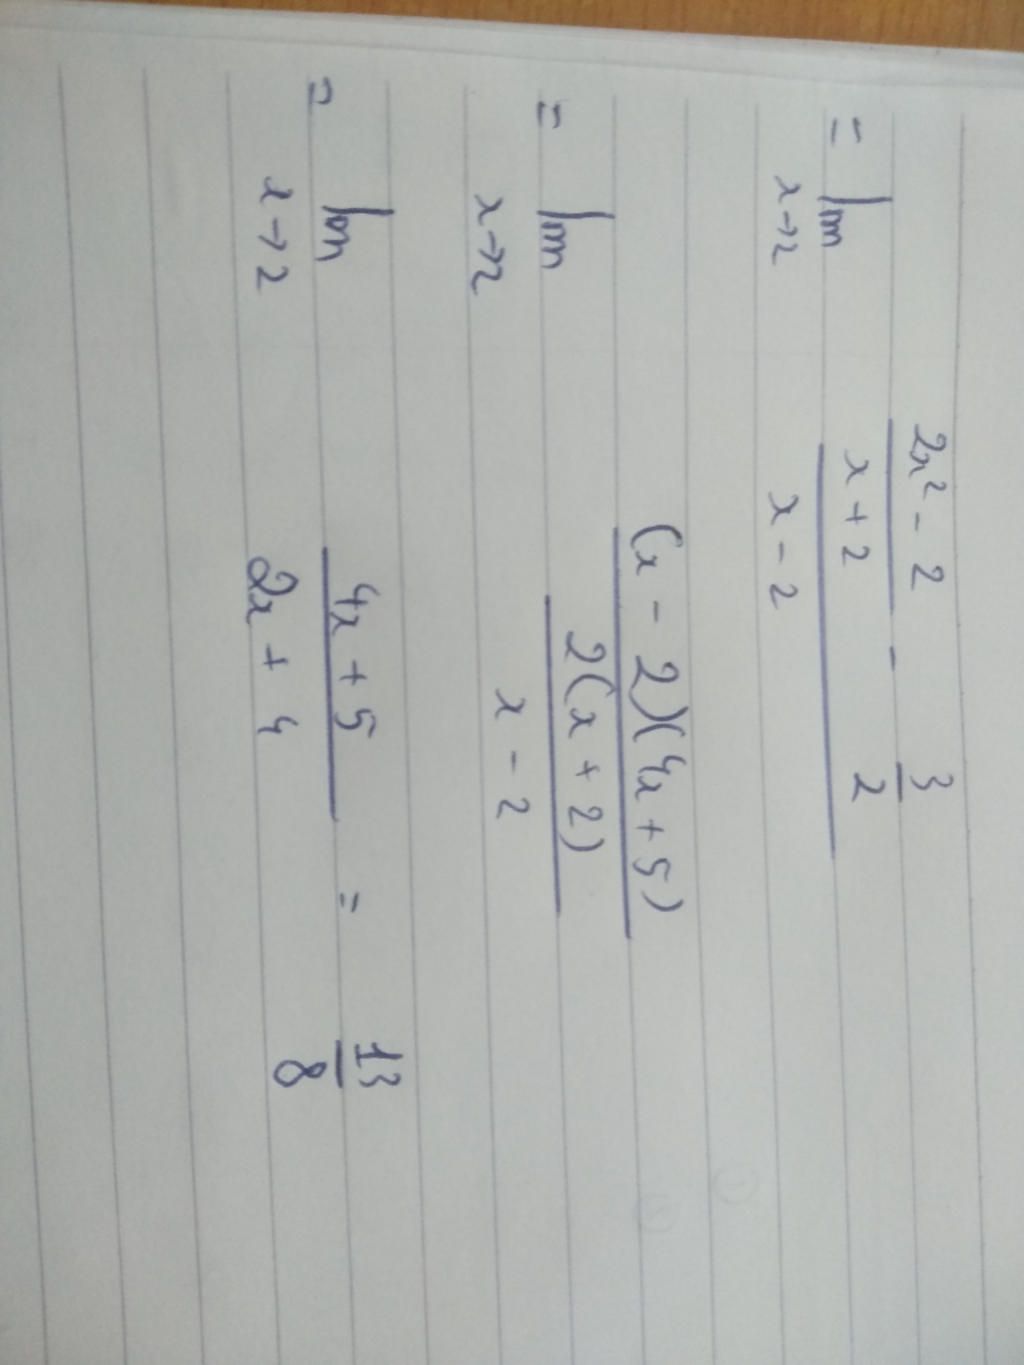 = lim x→2 ((2x² - 2)/(x + 2) - 3/2)/(x - 2)
= lim x→2 ((x - 2)(4x + 5)/(2(x + 2)))/(x - 2)
= lim x→2 (4x + 5)/(2x + 4) = 13/8